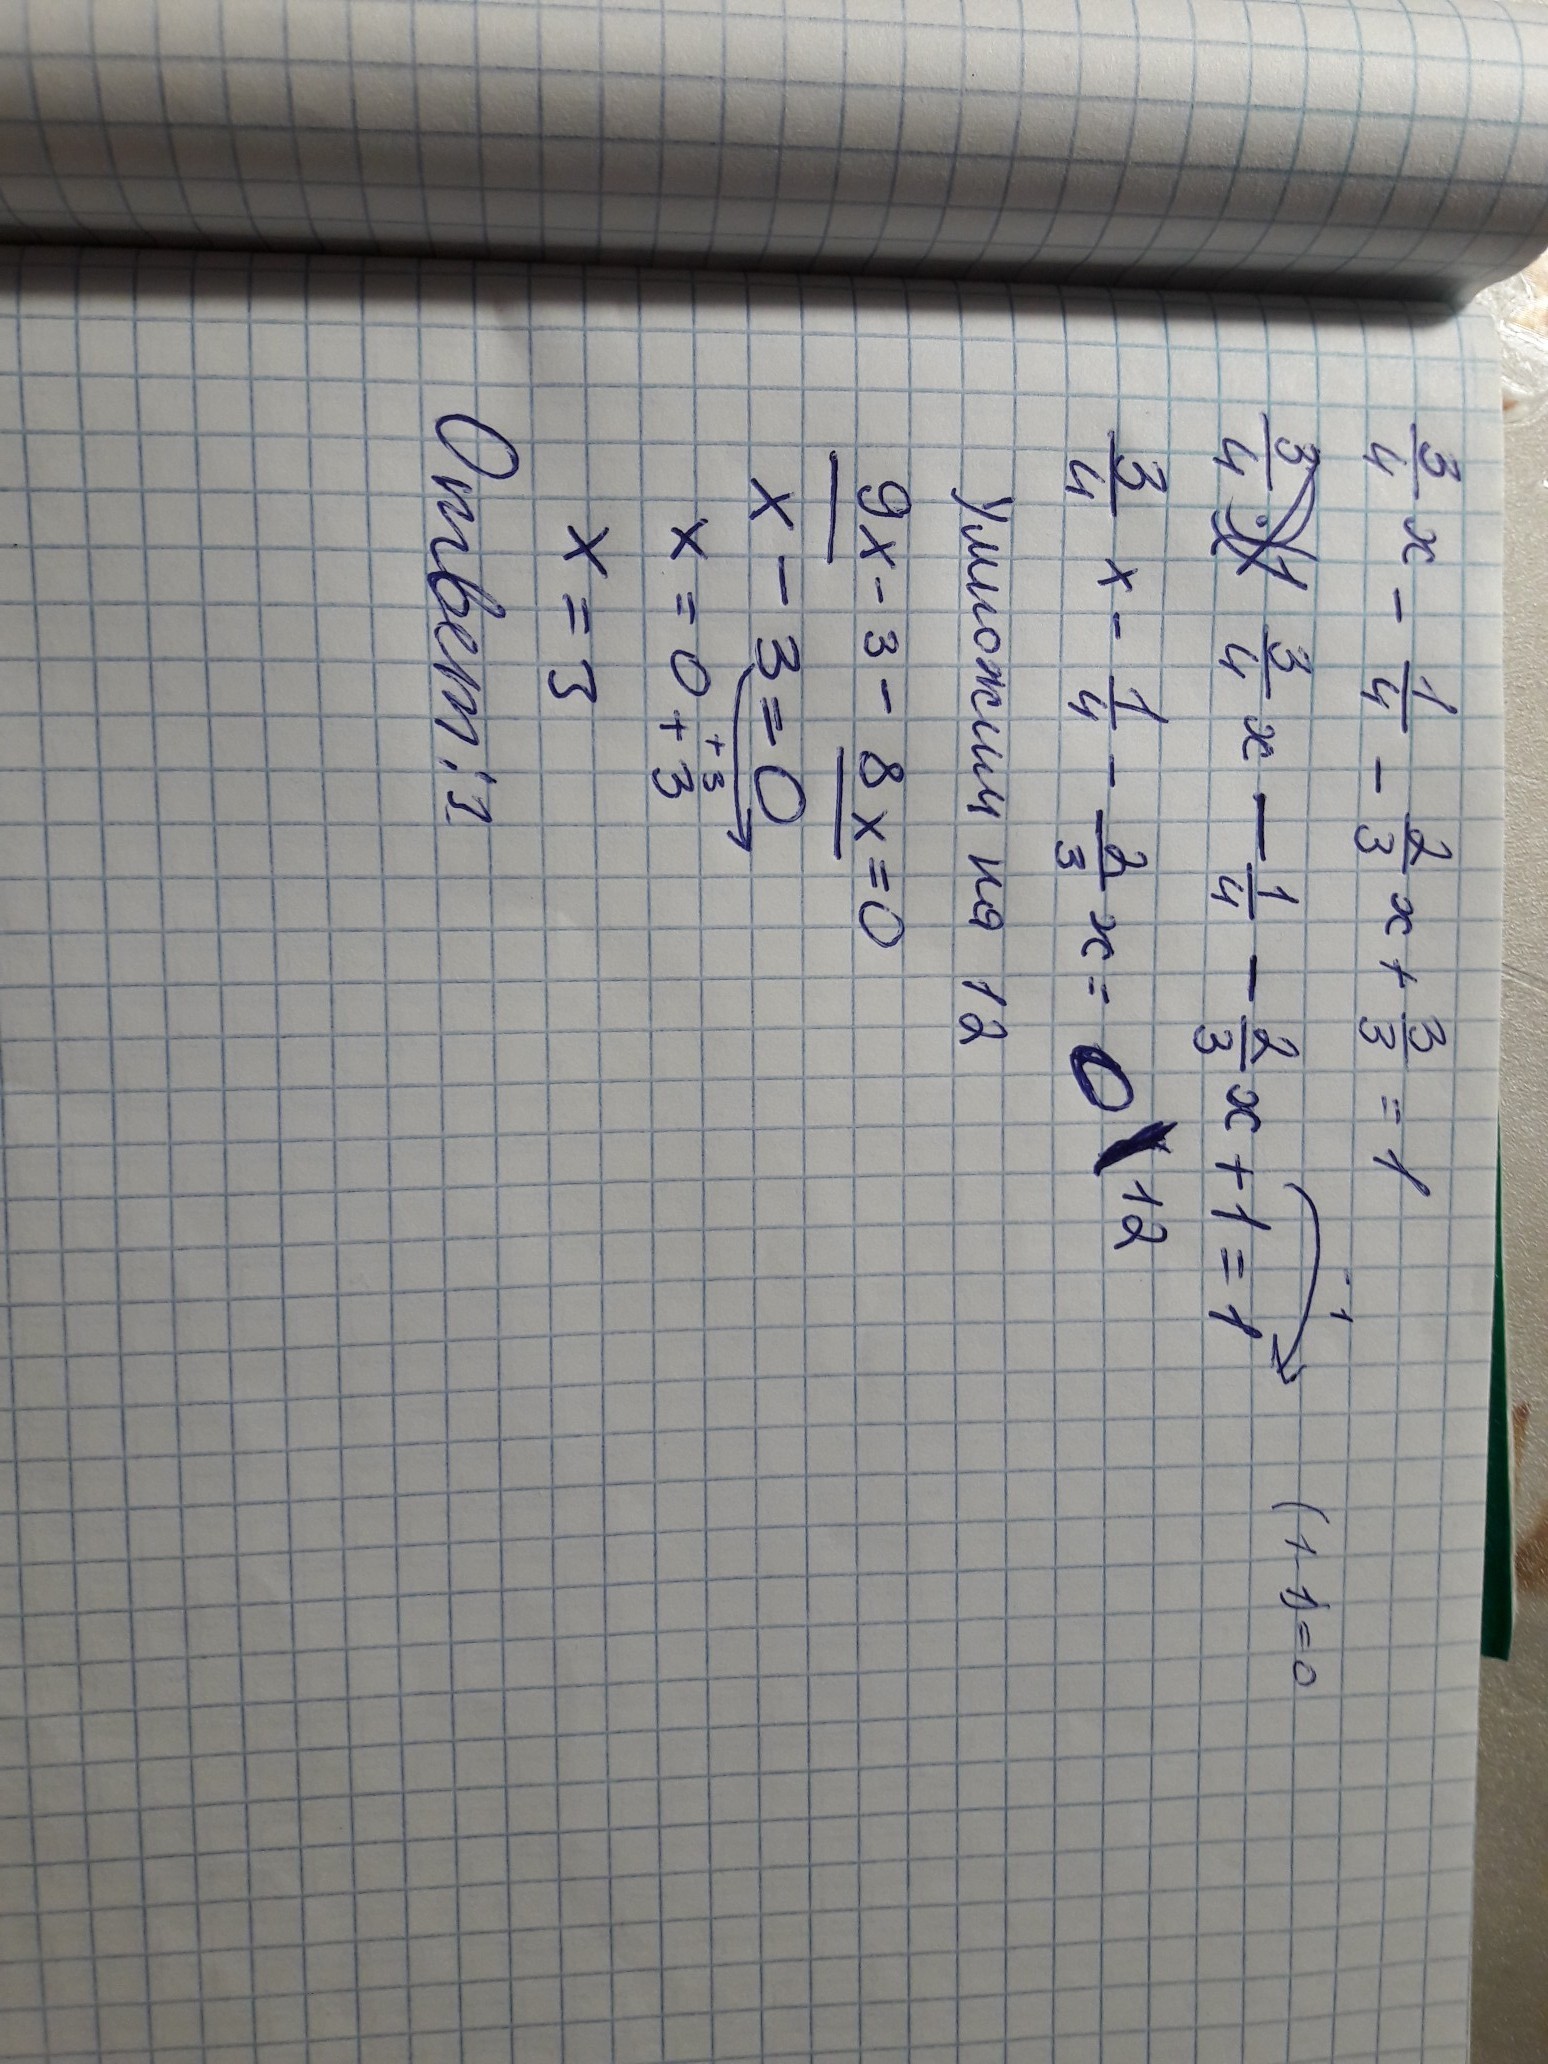 3/4 x - 1/4 - 2/3 x + 3/3 = 1
3/4 x - 1/4 - 2/3 x + 1 = 1 -1 (1-1)=0
3/4 x - 1/4 - 2/3 x = 0 \ 12
Умножим на 12
9x - 3 - 8x = 0
x - 3 = 0
+3
x = 0 + 3
x = 3
Ответ: